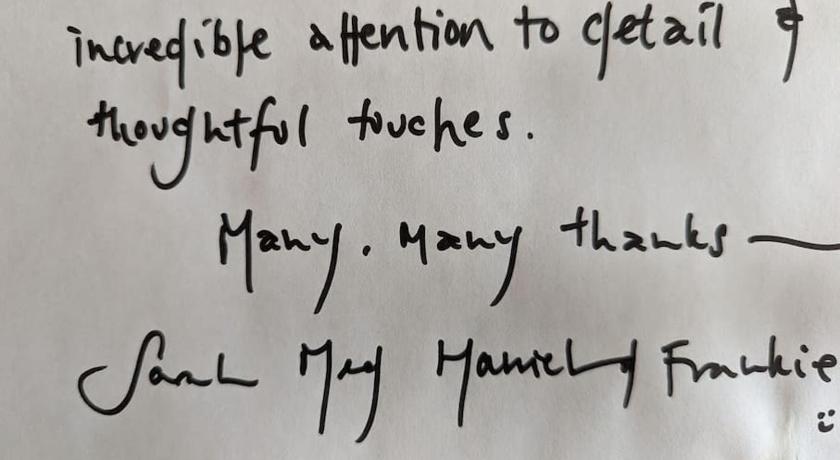 incredible attention to detail &
thoughtful touches.
Many. Many thanks —
Sarah Meg & Frankie